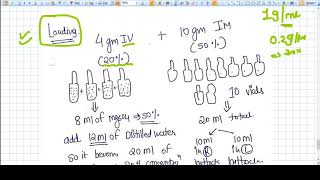 Loading
4 gm IV + 10 gm IM
(20%) (50%)
1g/ml
0.2g/ml
10 vials
8 ml of mgso4 → 50%
20 ml total
add 12 ml of Distilled water
10 ml 10 ml
in R in L
So it becomes 20 ml of
buttock buttock
20%